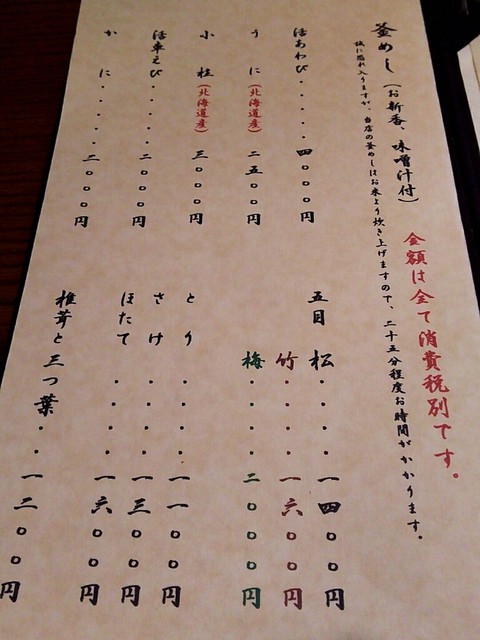 釜めし（お新香、味噌汁付）
金額は全て消費税別です。
誠に恐れ入りますが、当店の釜めしはお米より炊き上げますので、二十五分程度お時間がかかります。
活あわび・・・・・四〇〇〇円
うに（北海道産）二五〇〇円
小柱（北海道産）三〇〇〇円
活車えび・・・・・二〇〇〇円
かに・・・・・二〇〇〇円
五目 松・・・・一四〇〇円
竹・・・・一六〇〇円
梅・・・・二〇〇〇円
とり・・・・一一〇〇円
さけ・・・・一三〇〇円
ほたて・・・・一六〇〇円
椎茸と三つ葉・・一二〇〇円